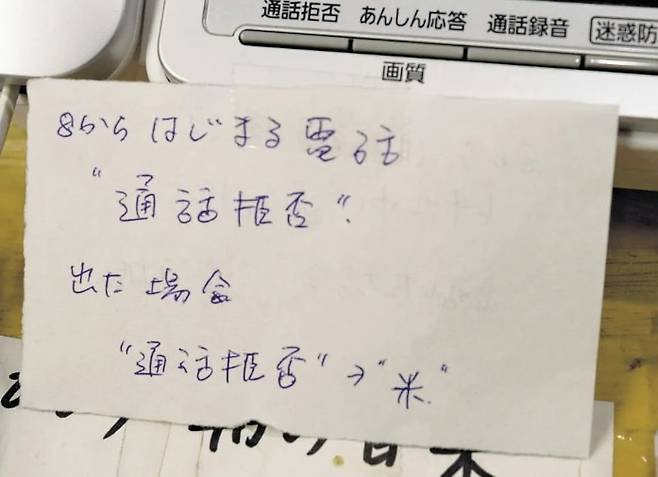 通話拒否 あんしん応答 通話録音 迷惑防
画質
8からはじまる電話
"通話拒否".
出た場合
"通話拒否"→"米"